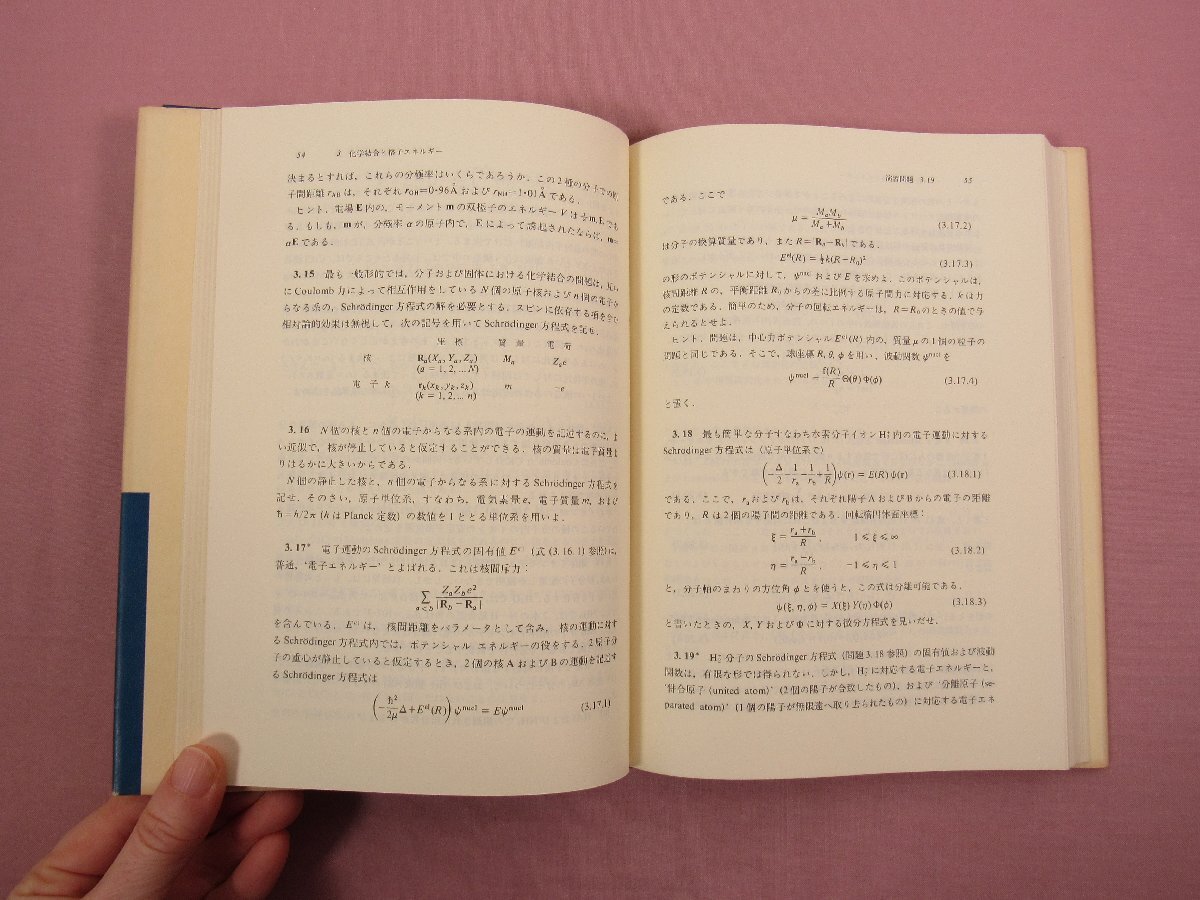 54 3 化学結合と格子エネルギー
決まるとすれば，これらの分極率はいくらであろうか．この2種の分子での原
子間距離 rAB は，それぞれ rOH=0·96Å および rNH=1·01Å である．
ヒント．電場 E 内の，モーメント m の双極子のエネルギー V は ½m.E であ
る．もしも，m が，分極率 α の原子内で，E によって誘起されたならば，m=
αE である．
3.15 最も一般形的では，分子および固体における化学結合の問題は，互い
に Coulomb 力によって相互作用をしている N 個の原子核および n 個の電子か
らなる系の，Schrödinger 方程式の解を必要とする．スピンに依存する項を含む
相対論的効果は無視して，次の記号を用いて Schrödinger 方程式を記せ．
座標 質量 電荷
核 Ra(Xa, Ya, Za) Ma Zae
(a = 1, 2, ... N)
電子 k rk(xk, yk, zk) m −e
(k = 1, 2, ... n)
3.16 N 個の核と n 個の電子からなる系内の電子の運動を記述するのに，よ
い近似で，核が停止していると仮定することができる．核の質量は電子質量よ
りはるかに大きいからである．
N 個の静止した核と，n 個の電子からなる系に対する Schrödinger 方程式を
記せ．そのさい，原子単位系，すなわち，電気素量 e，電子質量 m，および
ħ=h/2π (h は Planck 定数) の数値を1ととる単位系を用いよ．
3.17* 電子運動の Schrödinger 方程式の固有値 Eel (式 (3.16.1) 参照) は，
普通，‘電子エネルギー’とよばれる．これは核間斥力：
∑a<b ZaZbe²/|Rb − Ra|
を含んでいる．Eel は，核間距離をパラメータとして含み，核の運動に対す
る Schrödinger 方程式内では，ポテンシャル エネルギーの役をする．2原子分
子の重心が静止していると仮定するとき，2個の核 A および B の運動を記述す
る Schrödinger 方程式は
(−ħ²/2μ Δ+Eel(R)) ψnucl = Eψnucl (3.17.1)
演習問題 3.19 55
である．ここで
μ = MaMb/(Ma+Mb) (3.17.2)
は分子の換算質量であり，また R=|Ra−Rb| である．
Eel(R) = ½k(R−R0)² (3.17.3)
の形のポテンシャルに対して，ψnucl および E を求めよ．このポテンシャルは，
核間距離 R の，平衡距離 R0 からの差に比例する原子間力に対応する．k は力
の定数である．簡単のため，分子の回転エネルギーは，R=R0 のときの値で与
えられるとせよ．
ヒント．問題は，中心力ポテンシャル Eel(R) 内の，質量 μ の1個の粒子の
問題と同じである．そこで，球座標 R, θ, φ を用い，波動関数 ψnucl を
ψnucl = f(R)/R Θ(θ) Φ(φ) (3.17.4)
と書く．
3.18 最も簡単な分子すなわち水素分子イオン H₂⁺ 内の電子運動に対する
Schrödinger 方程式は (原子単位系で)
(−Δ/2 − 1/ra − 1/rb + 1/R) ψ(r) = E(R) ψ(r) (3.18.1)
である．ここで，ra および rb は，それぞれ陽子 A および B からの電子の距離
であり，R は2個の陽子間の距離である．回転楕円体面座標：
ξ = (ra+rb)/R, 1 ⩽ ξ ⩽ ∞
η = (ra−rb)/R, −1 ⩽ η ⩽ 1 (3.18.2)
と，分子軸のまわりの方位角 φ とを使うと，この式は分離可能である．
ψ(ξ, η, φ) = X(ξ) Y(η) Φ(φ) (3.18.3)
と書いたときの，X, Y および Φ に対する微分方程式を見いだせ．
3.19* H₂⁺ 分子の Schrödinger 方程式 (問題 3.18 参照) の固有値および波動
関数は，有限な形では得られない．しかし，H₂⁺ に対応する電子エネルギーと，
‘併合原子 (united atom)’ (2個の陽子が合致したもの)，および ‘分離原子 (se-
parated atom)’ (1個の陽子が無限遠へ取り去られたもの) に対応する電子エネ